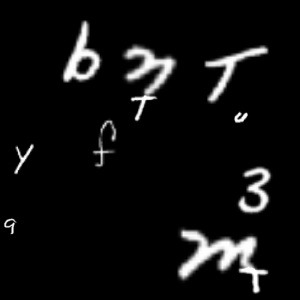 b m T
T
u
y f
3
9
m
T